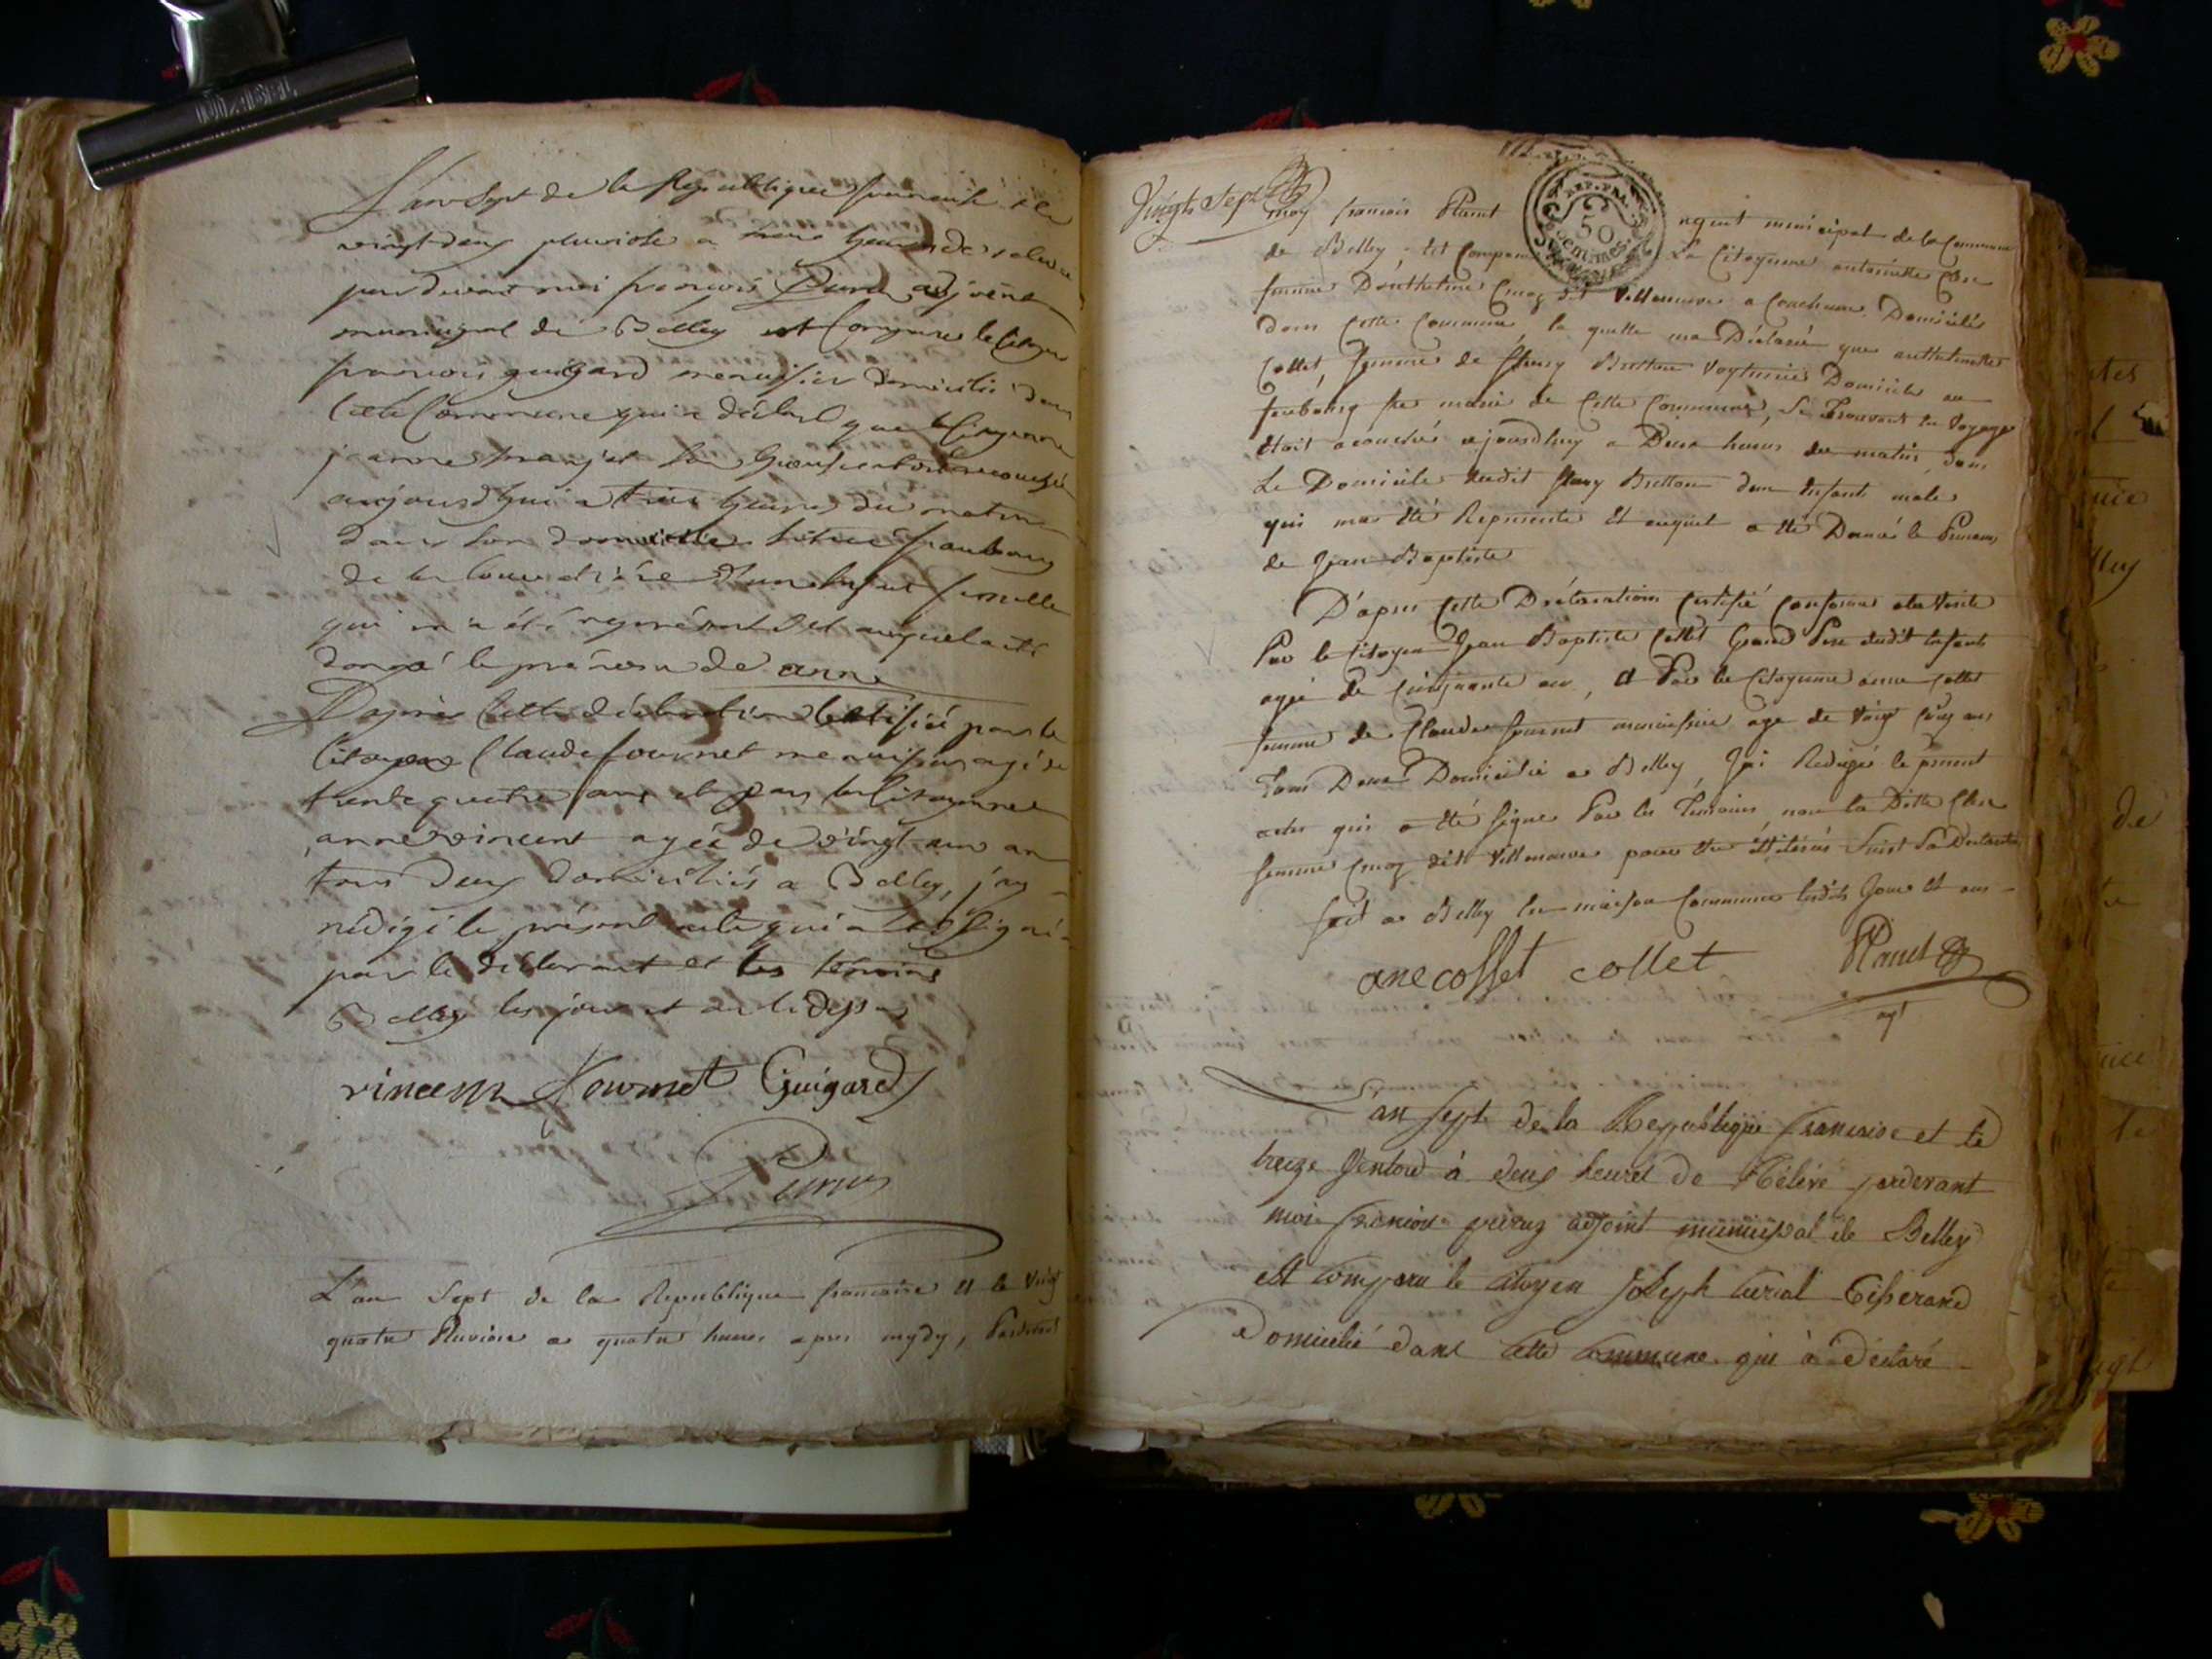 L'an Sept de la Republique francaise et le
vingt deux pluviose a heures de relevee
par devant moi francois adjoint
municipal de Belley est Comparu le Citoyen
francois guigard menuisier domicilié dans
Cette Commune qui a déclaré que la Citoyenne
jeanne son Epouse est accouchée
aujourdhui a trois heures du matin
dans son domicile situé fauxbourg
de d'un Enfant femelle
qui m'a été représenté et auquel a été
donné le prénom de anne
D'après Cette déclaration Certifiée par le
Citoyen Claude fournet menuisier agé de
trente quatre ans et par la Citoyenne
anne vincent agée de vingt un an
tous deux domiciliés a Belley, j'ay
rédigé le présent acte qui a été signé
par le déclarant et les témoins
Belley les jour et an ci dessus
vincent fournet Guigard
L'an Sept de la Republique francaise et le Vingt
quatre Pluviose a quatre heures apres mydy, Pardevant
Vingt Sept
moy francois agent municipal de la Commune
de Belley, est Comparu La Citoyenne antoinette
femme D'Anthelme Cruoz dit Villeneuve a Domiciliés
dans Cette Commune, la quelle ma Déclaré que anthelmette
Collet, femme de fleury Bretton Voyturier Domicilié au
faubourg de Cette Commune, Se Trouvant En Voyage
étoit acouchée ajourdhuy a Deux heures du matin, dans
Le Domicile dudit fleury Bretton dun Enfant male
qui ma été Représenté Et auquel a été Donné le Prenom
de Jean Baptiste
D'apres Cette Declaration Certifié Conforme a la Vérité
Par le Citoyen Jean Baptiste Collet Grand Pere dudit Enfant
agé de Cinquante ans, et Par la Citoyenne anne Collet
femme de Claude fournet menuisier age de Vingt Cinq ans
Tous Deux Domicilié a Belley, J'ai Redigée le present
acte qui a été signe Par les Temoins, non la Ditte
femme Cruoz dit Villeneuve pour être illiterée Suivt Sa Declaration
fait a Belley En maison Commune lesdits Jour et an
ane collet collet
agt
L'an sept de la Republique francaise et le
treize Ventose à deux heures de Relevé pardevant
moi francois adjoint municipal de Belley
est comparu le citoyen Joseph Curial Tisserand
Domicilié dans Cette Commune qui à Déclaré
REP. FRA.
50
Centimes